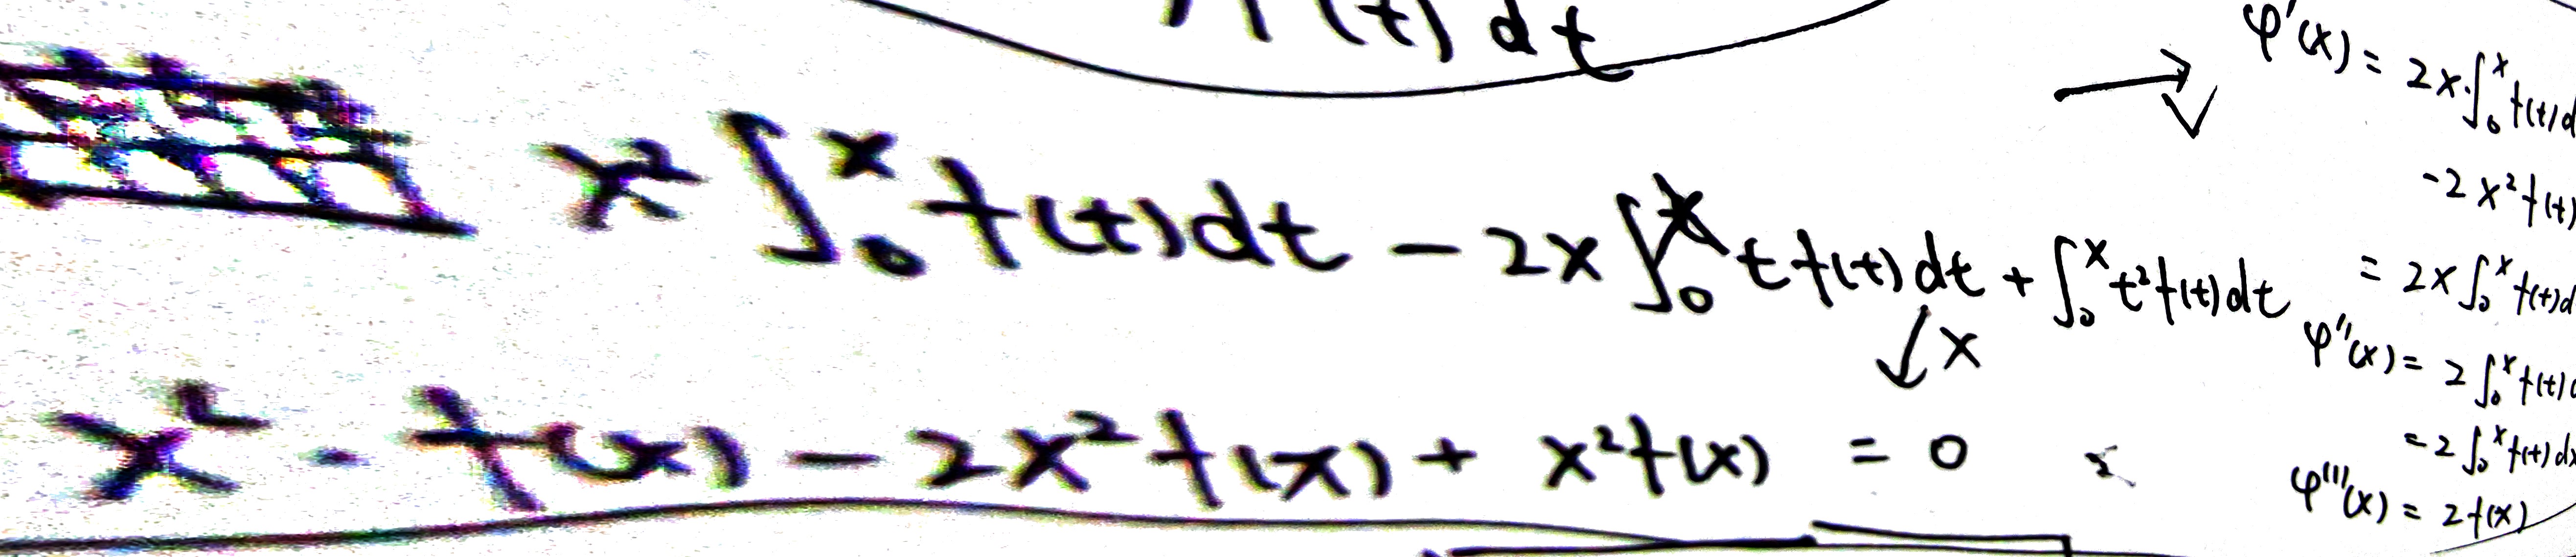 (t) dt
x² ∫₀ˣ f(t)dt − 2x ∫₀ˣ t f(t) dt + ∫₀ˣ t² f(t) dt
↓ x
x² · f(x) − 2x² f(x) + x² f(x) = 0
→
φ'(x) = 2x·∫₀ˣ f(t)d
-2x² f(t)
= 2x ∫₀ˣ f(t)d
φ''(x) = 2 ∫₀ˣ f(t)
= 2 ∫₀ˣ f(t) dx
φ'''(x) = 2f(x)